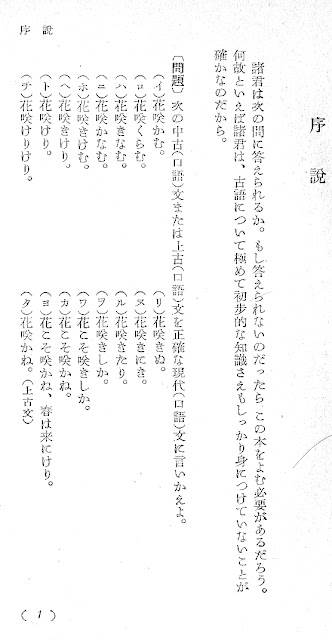 序説
諸君は次の問に答えられるか。もし答えられないのだったら この本をよむ必要があるだろう。
何故といえば諸君は、古語について極めて初步的な知識さえもしっかり身につけていないことが
確かなのだから。
〔問題〕 次の中古(口語)文または上古(口語)文を正確な現代(口語)文に言いかえよ。
(イ)花咲かむ。
(ロ)花咲くらむ。
(ハ)花咲きなむ。
(ニ)花咲かなむ。
(ホ)花咲きけむ。
(ヘ)花咲きけり。
(ト)花咲けり。
(チ)花咲けりけり。
(リ)花咲きぬ。
(ヌ)花咲きにき。
(ル)花咲きたり。
(ヲ)花咲きしか。
(ワ)花こそ咲きしか。
(カ)花こそ咲かね。
(ヨ)花こそ咲かね、春は来にけり。
(タ)花咲かね。(上古文)
序説
(1)